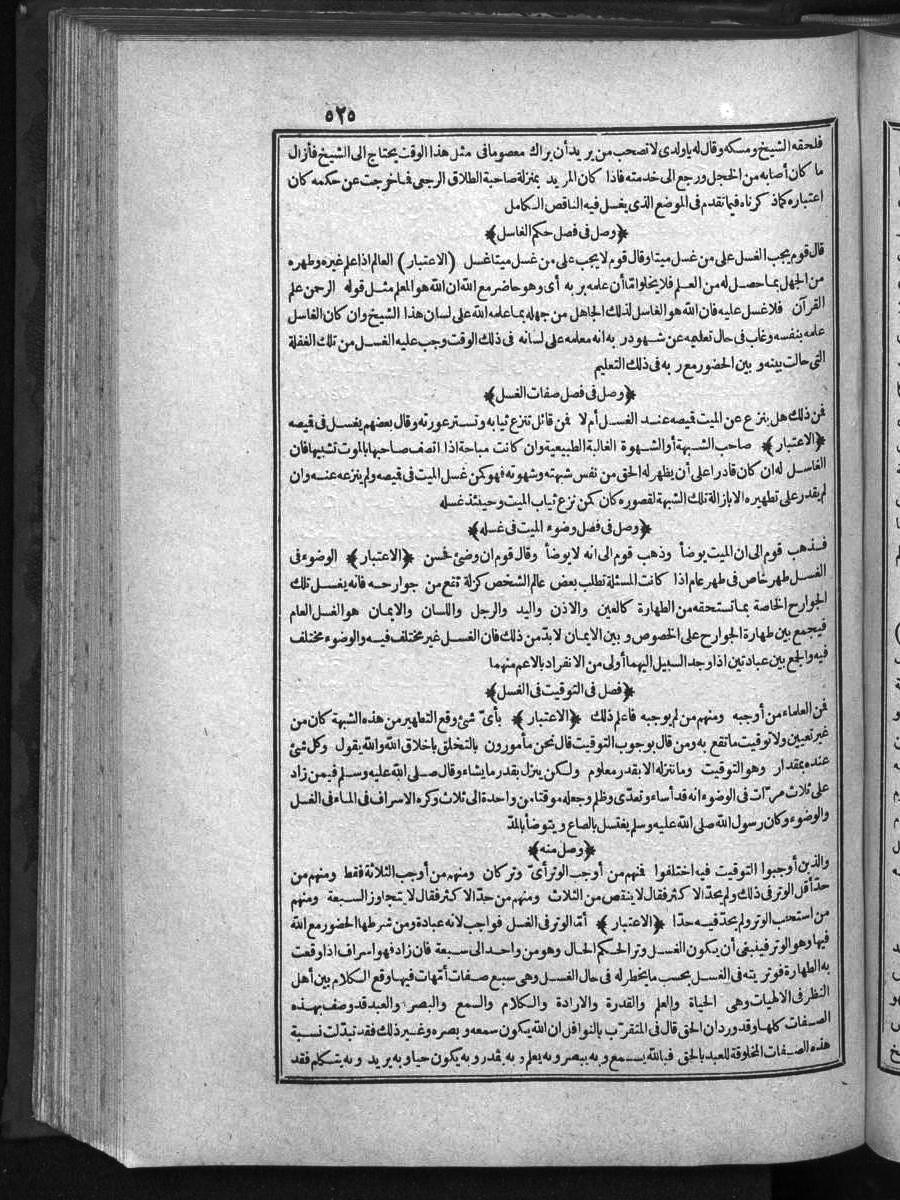 ٥٢٥
فلحقه الشيخ ومسكه وقال له يا ولدى لا تصحب من يريد أن يراك معصوما فى مثل هذا الوقت يحتاج الى الشيخ فأزال
ما كان أصابه من الخجل ورجع الى خدمته فاذا كان المريد بمنزلة صاحبة الطلاق الرجعى فماخرجت عن حكمه كان
اعتباره كماذ كرناه فيما تقدم فى الموضع الذى يغسل فيه الناقص الكامل
﴿وصل فى فصل حكم الغاسل﴾
قال قوم يجب الغسل على من غسل ميتا وقال قوم لا يجب على من غسل ميتا غسل (الاعتبار) العالم اذا علم غيره وطهره
من الجهل بما حصل له من العلم فلا يخلو اما أن علمه بربه أى وهو حاضر مع الله ان الله هو المعلم مثل قوله الرحمن علم
القرآن فلا غسل عليه فان الله هو الغاسل لذلك الجاهل من جهله بما علمه الله على لسان هذا الشيخ وان كان الغاسل
علمه بنفسه وغاب فى حال تعليمه عن شهود ربه انه معلمه على لسانه فى ذلك الوقت وجب عليه الغسل من تلك الغفلة
التى حالت بينه وبين الحضور مع ربه فى ذلك التعليم
﴿وصل فى فصل صفات الغسل﴾
فمن ذلك هل ينزع عن الميت قميصه عند الغسل أم لا فمن قائل تنزع ثيابه وتستر عورته وقال بعضهم يغسل فى قميصه
﴿الاعتبار﴾ صاحب الشبهة أو الشهوة الغالبة الطبيعية وان كانت مباحة اذا اتصف صاحبها بالموت تشبيها فان
الغاسل له ان كان قادرا على أن يظهر له الحق من نفس شبهته وشهوته فهو كمن غسل الميت فى قميصه ولم ينزعه عنه وان
لم يقدر على تطهيره الا بازالة تلك الشبهة لقصوره كان كمن نزع ثياب الميت وحينئذ غسله
﴿وصل فى فصل وضوء الميت فى غسله﴾
فذهب قوم الى ان الميت يوضأ وذهب قوم الى انه لا يوضأ وقال قوم ان وضئ فحسن ﴿الاعتبار﴾ الوضوء فى
الغسل طهر خاص فى طهر عام اذا كانت المسئلة تطلب بعض عالم الشخص كزلة تقع من جوارحه فانه يغسل تلك
الجوارح الخاصة بما تستحقه من الطهارة كالعين والاذن واليد والرجل واللسان والايمان هو الغسل العام
فيجمع بين طهارة الجوارح على الخصوص وبين الايمان لا بد من ذلك فان الغسل غير مختلف فيه والوضوء مختلف
فيه والجع بين عبادتين اذا وجد السبيل اليهما أولى من الانفراد بالاعم منهما
﴿فصل فى التوقيت فى الغسل﴾
فمن العلماء من أوجبه ومنهم من لم يوجبه فاعلم ذلك ﴿الاعتبار﴾ بأىّ شئ وقع التطهير من هذه الشبهة كان من
غير تعيين ولا توقيت ما تقع به ومن قال بوجوب التوقيت قال نحن مأمورون بالتخلق باخلاق الله والله يقول وكل شئ
عنده بمقدار وهو التوقيت وما ننزله الا بقدر معلوم ولكن ينزل بقدر ما يشاء وقال صلى الله عليه وسلم فيمن زاد
على ثلاث مرّات فى الوضوء انه قد أساء وتعدى وظلم وجعله موقتا من واحدة الى ثلاث وكره الاسراف فى الماء فى الغسل
والوضوء وكان رسول الله صلى الله عليه وسلم يغتسل بالصاع ويتوضأ بالمدّ
﴿وصل منه﴾
والذين أوجبوا التوقيت فيه اختلفوا فمنهم من أوجب الوتر أىّ وتر كان ومنهم من أوجب الثلاثة فقط ومنهم من
حدّ أقل الوتر فى ذلك ولم يحدّ الاكثر فقال لا ينقص من الثلاث ومنهم من حدّ الاكثر فقال لا يتجاوز السبعة ومنهم
من استحب الوتر ولم يحدّ فيه حدّا ﴿الاعتبار﴾ أمّا الوتر فى الغسل فواجب لانه عبادة ومن شرطها الحضور مع الله
فيها وهو الوتر فينبغى أن يكون الغسل وترا لحكم الحال وهو من واحد الى سبعة فان زاد فهو اسراف اذا وقعت
به الطهارة فوتريته فى الغسل بحسب ما يخطر له فى حال الغسل وهى سبع صفات أمّهات فيها وقع الكلام بين أهل
النظر فى الالهيات وهى الحياة والعلم والقدرة والارادة والكلام والسمع والبصر والعبد قد وصف بهذه
الصفات كلها وقد ورد ان الحق قال فى المتقرّب بالنوافل ان الله يكون سمعه وبصره وغير ذلك فقد تبدّلت نسبة
هذه الصفات المخلوقة للعبد بالحق فبالله يسمع وبه يبصر وبه يعلم وبه يقدر وبه يكون حيا وبه يريد وبه يتكلم فقد